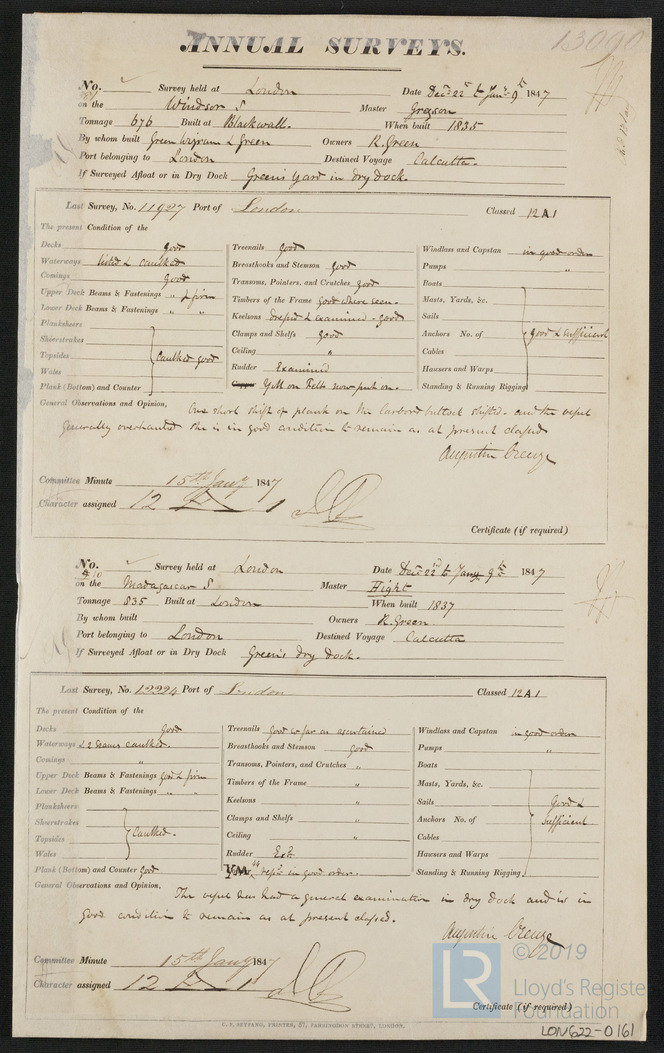 ANNUAL SURVEYS.
13090
No. Survey held at London Date Decr. 22d to Jany 9th 1847
on the Windsor S Master Greyson
Tonnage 676 Built at Blackwall. When built 1835
By whom built Green Wigram & Green Owners R. Green
Port belonging to London Destined Voyage Calcutta.
If Surveyed Afloat or in Dry Dock Green's Yard in dry dock.
Last Survey, No. 11927 Port of London Classed 12 A 1
The present Condition of the
Decks good
Waterways listed & caulked
Comings good
Upper Deck Beams & Fastenings " & firm
Lower Deck Beams & Fastenings " "
Planksheers
Sheerstrakes
Topsides caulked good
Wales
Plank (Bottom) and Counter
Treenails good
Breasthooks and Stemson good
Transoms, Pointers, and Crutches good
Timbers of the Frame good where seen.
Keelsons drop'd & examined - good
Clamps and Shelfs good
Ceiling "
Rudder Examined
Copper Y.M on Felt now put on.
Windlass and Capstan in good order
Pumps "
Boats
Masts, Yards, &c.
Sails
Anchors No. of good & sufficient
Cables
Hawsers and Warps
Standing & Running Rigging
General Observations and Opinion, One short shift of plank on the larboard buttock shifted - and the vessel
generally overhauled she is in good condition to remain as at present classed
Augustin Creuze
Committee Minute 15th Jany 1847
Character assigned 12 A 1
Certificate (if required)
No. Survey held at London Date Decr 22d to Jany 9th 1847
on the Madagascar S Master Hight
Tonnage 835 Built at London When built 1837
By whom built Owners R. Green
Port belonging to London Destined Voyage Calcutta
If Surveyed Afloat or in Dry Dock Green's dry dock.
Last Survey, No. 12224 Port of London Classed 12 A 1
The present Condition of the
Decks Good
Waterways & 2 seams caulked.
Comings "
Upper Deck Beams & Fastenings good & firm
Lower Deck Beams & Fastenings " "
Planksheers
Sheerstrakes
Topsides Caulked.
Wales
Plank (Bottom) and Counter good
Treenails good so far as ascertained
Breasthooks and Stemson good
Transoms, Pointers, and Crutches "
Timbers of the Frame "
Keelsons "
Clamps and Shelfs "
Ceiling "
Rudder Ex'd
YM in good order.
Windlass and Capstan in good order
Pumps "
Boats
Masts, Yards, &c.
Sails Good &
Anchors No. of sufficient
Cables
Hawsers and Warps
Standing & Running Rigging
General Observations and Opinion, The vessel has had a general examination in dry dock and is in
Good condition to remain as at present classed.
Augustin Creuze
Committee Minute 15th Jany 1847
Character assigned 12 A 1
Certificate (if required)
C. F. SEYFANG, PRINTER, 57, FARRINGDON STREET, LONDON.
© 2019
LR Lloyd's Register
Foundation
LON622-0161